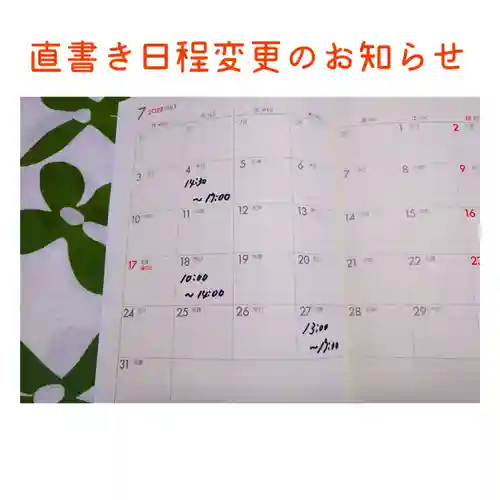 直書き日程変更のお知らせ
7 2023
1 2
3 4 5 6 7 8 9
14:30
～17:00
10 11 12 13 14 15 16
17 18 19 20 21 22 23
10:00
～14:00
24 25 26 27 28 29
13:00
～17:00
31